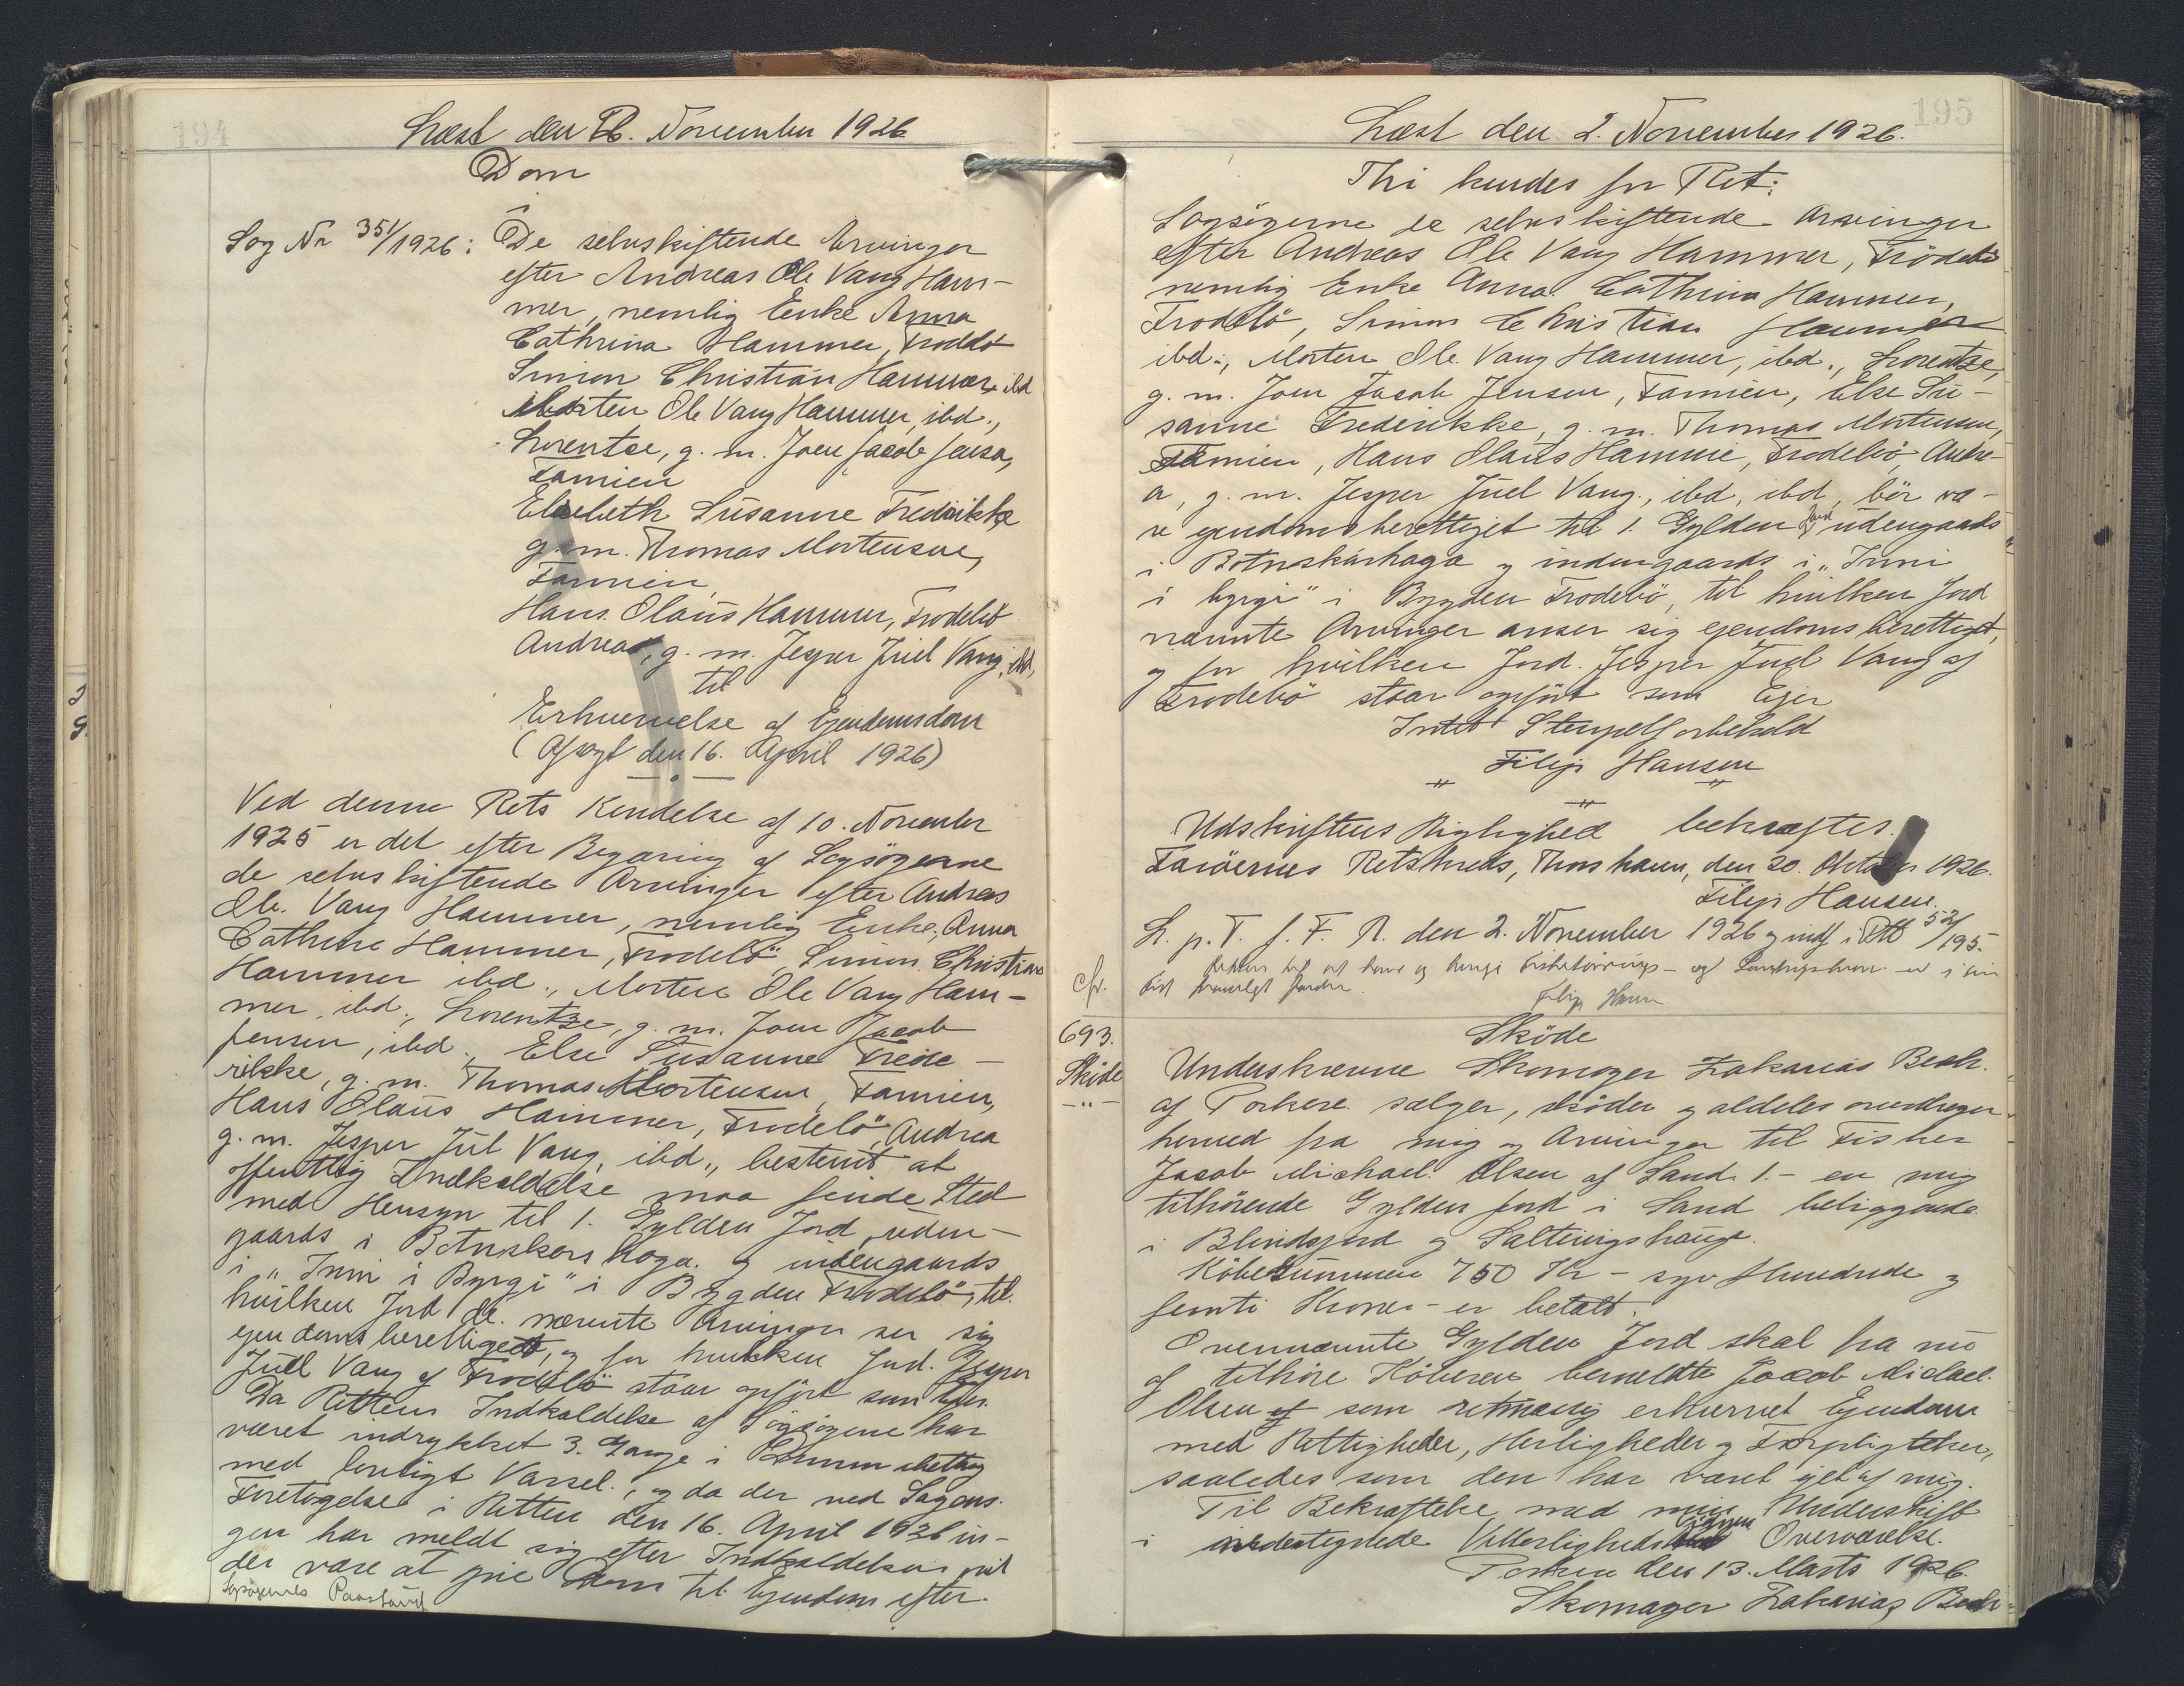 194
Læst den 2. November 1926
Dom
i
Sag Nr 351/1926: De selvskiftende Arvinger
efter Andreas Ole Vang Ham-
mer, nemlig Enke Anna
Cathrina Hammer, Frodebö
Simon Christian Hammer, ibd
Morten Ole Vang Hammer, ibd.,
Lorentse, g. m. Joen Jacob Jensen,
Famien
Elsebeth Susanne Fredrikke
g. m. Thomas Mortensen,
Famien,
Hans Olaus Hammer, Frodebö
Andrea, g. m. Jesper Juel Vang, ibd,
til
Erhvervelse af Ejendomsdom
(Afsagt den 16. April 1926)
Ved denne Rets Kendelse af 10. November
1925 er det efter Begæring af Sagsögerne
de selvskiftende Arvinger efter Andreas
Ole Vang Hammer, nemlig Enke, Anna
Cathrine Hammer, Frodebö, Simon Christian
Hammer ibd., Morten Ole Vang Ham-
mer, ibd., Lorentze, g. m. Joen Jacob
Jensen, ibd., Else Susanne Frede-
rikke, g. m. Thomas Mortensen, Famien,
Hans Olaus Hammer, Frodebö, Andrea
g. m. Jesper Jul Vang, ibd., bestemt at
offentlig Indkaldelse maa finde Sted
med Hensyn til 1. Gylden Jord, uden-
gaards i Botnskarshaga og indengaards
i "Inni i Byrgi" i Bygden Frodebö, til
hvilken Jord de nævnte Arvinger ser sig
ejendomsberettiget, og for hvilken Jord Jesper
Juel Vang af Frodebö staar opfört som Ejer.
Da Rettens Indkaldelse af Sagsögerne har
været indrykket 3. Gange i
med lovligt Varsel., og da der ved Sagens
Foretagelse i Retten den 16. April 1926 in-
gen har meldt sig efter Indkaldelsen, vil
der være at give Dom til Ejendom efter
Sagsögernes Paastand
195
Læst den 2. November 1926.
Thi kendes for Ret:
Sagsögerne de selvskiftende Arvinger
efter Andreas Ole Vang Hammer, Frödebö
nemlig Enke Anna Cathrina Hammer,
Frodebö, Simon Christian Hammer
ibd., Morten Ole Vang Hammer, ibd., Lorentze,
g. m. Joen Jacob Jensen, Famien, Else Su-
sanne Frederikke, g. m. Thomas Mortensen,
Famien, Hans Olaus Hamme, Frodebö, Andre-
a, g. m. Jesper Juel Vang, ibd, ibd, bör væ-
re ejendomsberettiget til 1. Gylden Jord udengaards
i Botnskarhaga og indengaards i "Inni
i byrgi" i Bygden Frodebö, til hvilken Jord
nævnte Arvinger anser sig ejendomsberettiget,
og for hvilken Jord Jesper Juel Vang af
Frodebö staar opfört som Ejer
Intet Stempelforbehold
Filip Hansen
Udskriftens Rigtighed bekræftes.
Færöernes Retskreds, Thorshavn, den 20. Oktober 1926.
Filip Hansen.
L. p. T. f. F. R. den 2. November 1926 og indf. i Ptb 52/195.
cfr.
Filip Hansen
693.
Sköde
Sköde
Underskrevne Skomager Zakarias Bech.
af Porkere sælger, sköder og aldeles overdrager
herved fra mig og Arvinger til Fisker
Jacob Michael Olsen af Sand 1.- en mig
tilhörende Gylden Jord i Sand beliggende
i Blindgjerd og Saltvigshauge.
Köbesummen 750 Kr - syv Hundrede og
femti Kroner - er betalt.
Ovennævnte Gylden Jord skal fra nu
af tilhöre Köberen bemeldte Jacob Michael
Olsen af som retmæssig erhvervet Ejendom
med Rettigheder, Herligheder og Forpligtelser,
saaledes som den har været ejet af mig.
Til Bekræftelse med min Underskift
i undertegnede Vitterlighedsvidners Overværelse.
Porkere den 13. Marts 1926.
Skomager Zakarias Bech